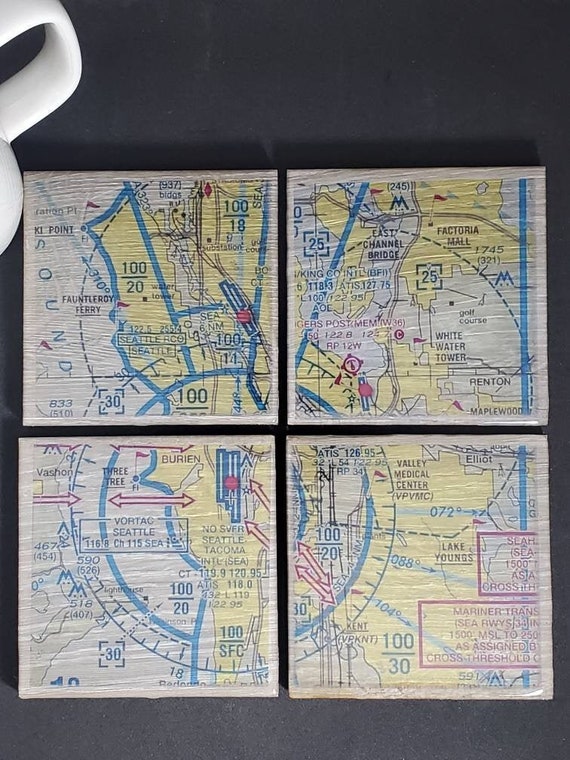 (937)
bldgs
ration Pt
KI POINT
100
18
SEA
substation
golf
S O U N D
310°
100
20
water
tower
FAUNTLEROY
FERRY
122.5
SEATTLE RCO
SEATTLE
SEA
6 NM
100
11
833
(510)
30
100
(245)
EAST
CHANNEL
BRIDGE
FACTORIA
MALL
1745
(321)
25
25
VKING CO INTL (BFI)
118.3 ATIS 127.75
L100 122.95
GERS POST (MEM) (W36)
50 122.8
C
RP 12W
golf
course
WHITE
WATER
TOWER
RENTON
MAPLEWOOD
Vashon
THREE
TREE
BURIEN
VORTAC
SEATTLE
116.8 Ch 115 SEA
NO SVFR
SEATTLE
TACOMA
INTL (SEA)
CT - 119.9 120.95
ATIS 118.0
432 L 119
122.95
467
(454)
590
(526)
518
(407)
lighthouse
100
20
30
18
100
SFC
Redondo
ATIS 126.95
32 L 54 122.95
RP 34
VALLEY
MEDICAL
CENTER
(VPVMC)
Elliot
072°
100
20
LAKE
YOUNGS
088°
SEA
104°
30
KENT
(VPKNT)
100
30
SEAH
(SEA
1500'
AS A
CROSS-THR
MARINER TRANS
(SEA RWYS 34 IN
1500 MSL TO 250
AS ASSIGNED BY
CROSS THRESHOLD O
591